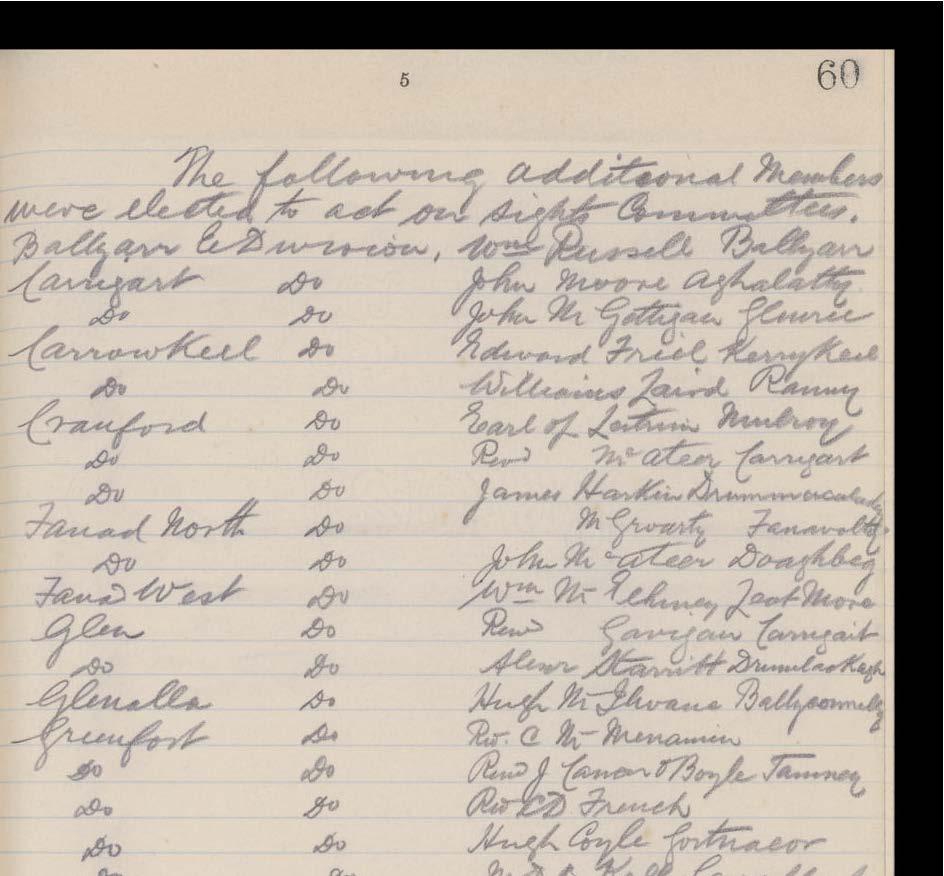 5
60
The following additional Members
were elected to act on sights Committees.
Ballyarr E Division, Wm Russell Ballyarr
Carrigart Do John Moore Aghalatty
Do Do John Mc Gettigan Glenree
Carrowkeel Do Edward Friel Kerrykeel
Do Do William Laird Ranny
Cranford Do Earl of Leitrim Mulroy
Do Do Revd McAteer Carrigart
Do Do James Harkin
Fanad North Do McGroarty Fanavolty
Do Do John McAteer Doaghbeg
Fanad West Do Wm Mc Elhiney Leat More
Glen Do Revd Gavigan Carrigart
Do Do Alexr Starritt Drumlackagh
Glenalla Do Hugh Mc Ilwane Ballyconnelly
Greenfort Do Rev. C Mc Menamin
Do Do Revd J Canon O'Boyle Tamney
Do Do Rev French
Do Do Hugh Coyle Gortnacor